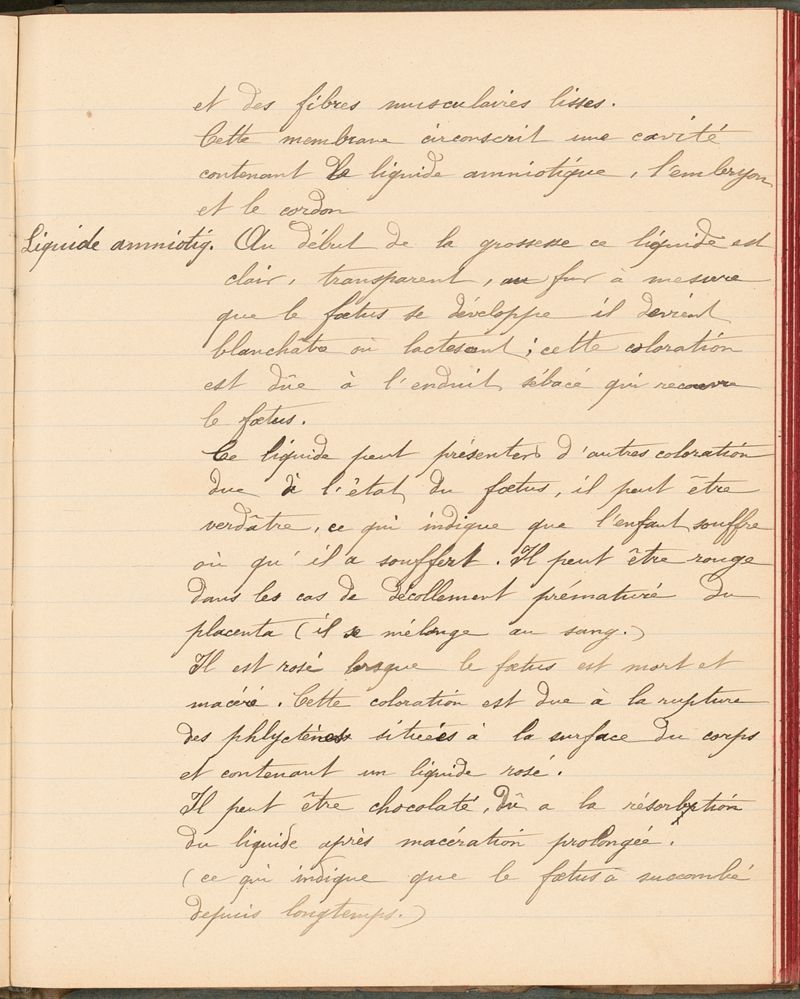 et des fibres musculaires lisses.
Cette membrane circonscrit une cavité
contenant le liquide amniotique, l'embryon
et le cordon
Liquide amniotiq. Au début de la grossesse ce liquide est
clair, transparent, au fur à mesure
que le fœtus se développe il devient
blanchâtre ou lactescent ; cette coloration
est dûe à l'enduit sébacé qui recouvre
le fœtus.
Ce liquide peut présenter d'autres coloration
due à l'état du fœtus, il peut être
verdâtre, ce qui indique que l'enfant souffre
où qu'il a souffert. Il peut être rouge
dans les cas de décollement prématuré du
placenta (il se mélange au sang.)
Il est rosé lorsque le fœtus est mort et
macéré. Cette coloration est due à la rupture
des phlyctènes situées à la surface du corps
et contenant un liquide rosé.
Il peut être chocolaté, dû a la résorbption
du liquide après macération prolongée.
(ce qui indique que le fœtus à succombé
depuis longtemps.)